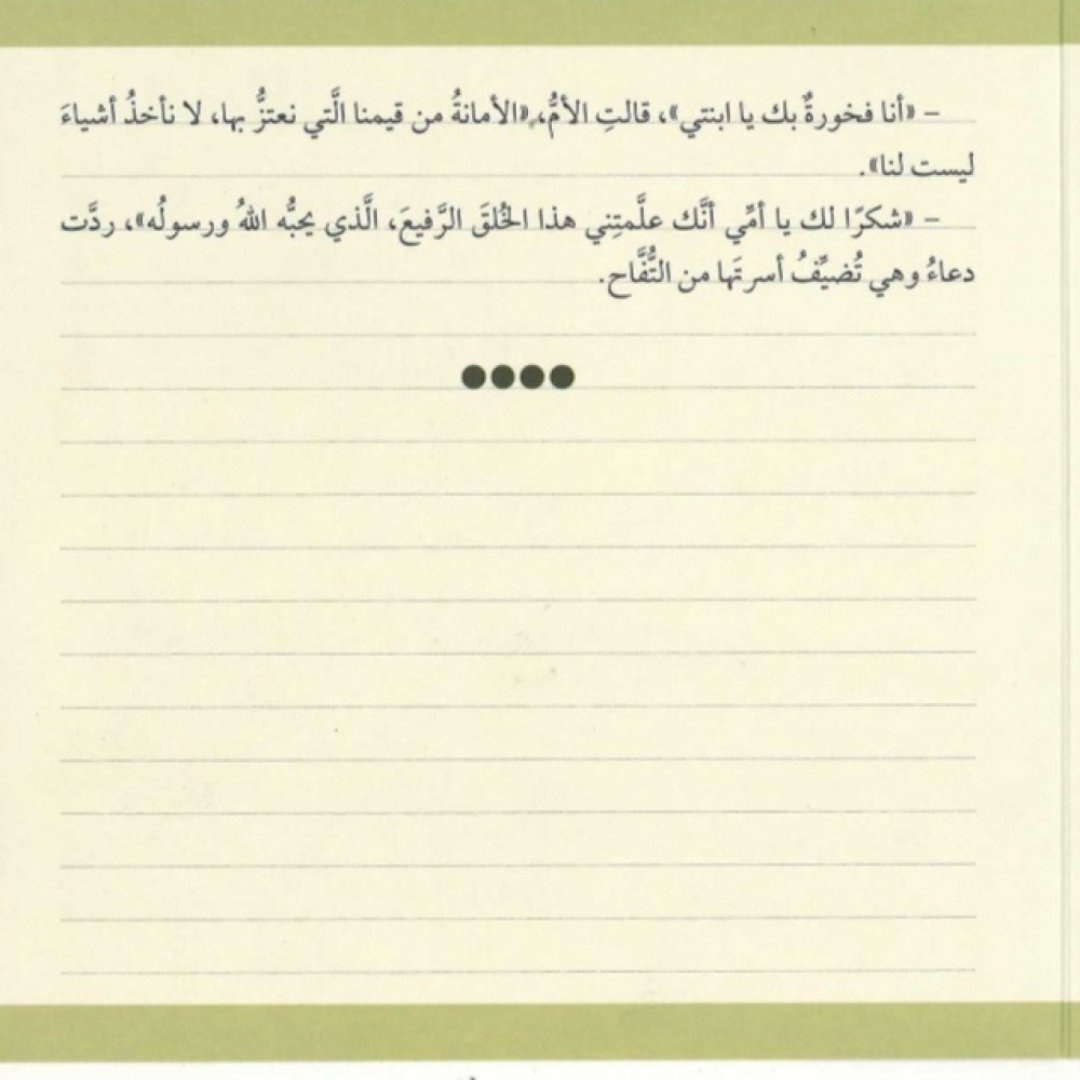 – «أنا فخورةٌ بك يا ابنتي»، قالتِ الأمُّ، «الأمانةُ من قيمنا الَّتي نعتزُّ بها، لا نأخذُ أشياءَ
ليست لنا».
– «شكرًا لك يا أمِّي أنَّك علَّمتِني هذا الخُلقَ الرَّفيعَ، الَّذي يحبُّه اللهُ ورسولُه»، ردَّت
دعاءُ وهي تُضيِّفُ أسرتَها من التُّفَّاح.